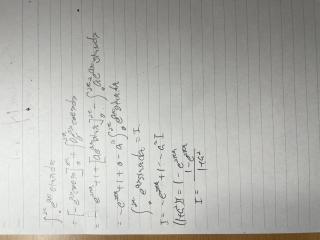 ∫₀^{2π} e^{ax} sinx dx
= [-e^{ax} cosx]₀^{2π} + ∫₀^{2π} a e^{ax} cosx dx
= -e^{2πa} + 1 + [a e^{ax} sinx]₀^{2π} - ∫₀^{2π} a² e^{ax} sinx dx
= -e^{2πa} + 1 + 0 - a² ∫₀^{2π} e^{ax} sinx dx
∫₀^{2π} e^{ax} sinx dx = I
I = -e^{2πa} + 1 - a² I
(1+a²)I = 1 - e^{2πa}
I = (1 - e^{2πa}) / (1+a²)